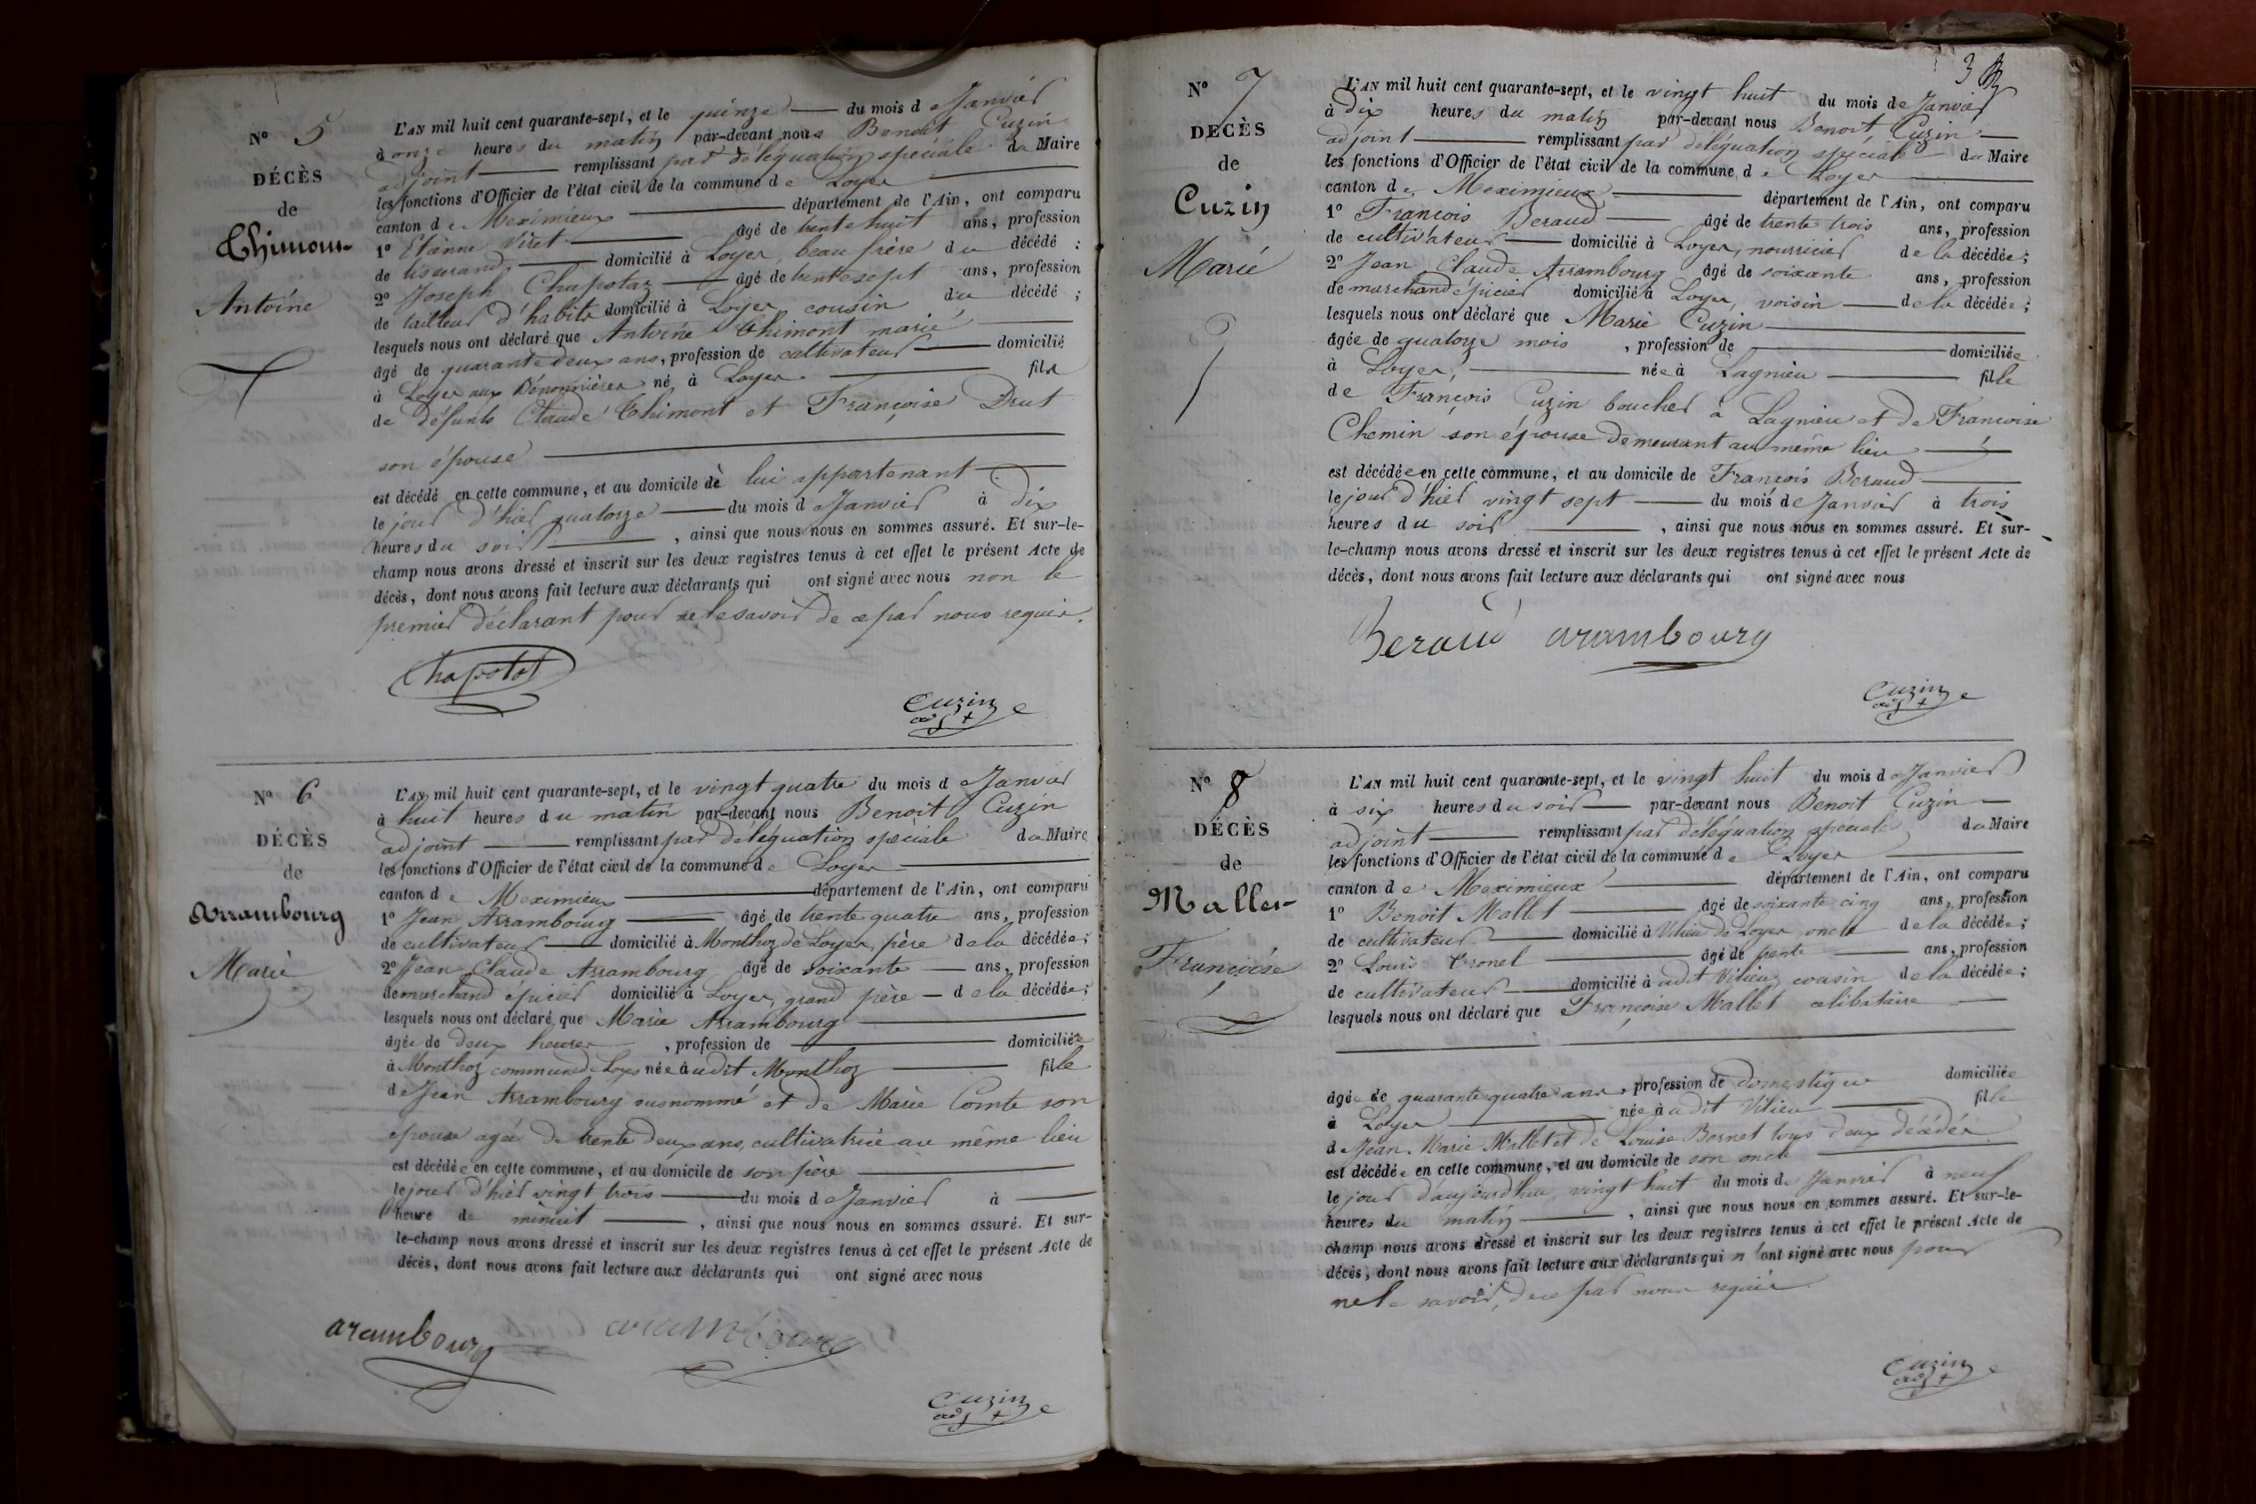 N° 5
DÉCÈS
de
Thimont
Antoine
L'AN mil huit cent quarante-sept, et le quinze du mois de Janvier
à onze heures du matin par-devant nous Benoit Cuzin
adjoint remplissant par déléguation spéciale du Maire
les fonctions d'Officier de l'état civil de la commune de Loyes
canton de Meximieux département de l'Ain, ont comparu
1° Etienne Viret âgé de trente huit ans, profession
de tisserand domicilié à Loyes, beau frère du décédé ;
2° Joseph Chapotaz âgé de trente sept ans, profession
de tailleur d'habits domicilié à Loyes cousin du décédé ;
lesquels nous ont déclaré que Antoine Thimont marié
âgé de quarante deux ans, profession de cultivateur domicilié
à Loyes aux né à Loyes fils
de défunts Claude Thimont et Françoise Drut
son épouse
est décédé en cette commune, et au domicile à lui appartenant
le jour d'hier quatorze du mois de Janvier à dix
heures du soir, ainsi que nous nous en sommes assuré. Et sur-le-
champ nous avons dressé et inscrit sur les deux registres tenus à cet effet le présent Acte de
décès, dont nous avons fait lecture aux déclarants qui ont signé avec nous non le
premier déclarant pour ne le savoir de ce par nous requis.
Chapotot
Cuzin
adjt
N° 6
DÉCÈS
de
Arrambourg
Marie
L'AN mil huit cent quarante-sept, et le vingt quatre du mois de Janvier
à huit heures du matin par-devant nous Benoit Cuzin
adjoint remplissant par déléguation spéciale du Maire
les fonctions d'Officier de l'état civil de la commune de Loyes
canton de Meximieux département de l'Ain, ont comparu
1° Jean Arrambourg âgé de trente quatre ans, profession
de cultivateur domicilié à Monthoz de Loyes, père de la décédée ;
2° Jean Claude Arrambourg âgé de soixante ans, profession
de marchand épicier domicilié à Loyes, grand père de la décédée ;
lesquels nous ont déclaré que Marie Arrambourg
âgée de deux heures, profession de domiciliée
à Monthoz commune de Loyes née audit Monthoz fille
de Jean Arrambourg susnommé et de Marie Comte son
épouse agée de trente deux ans, cultivatrice au même lieu
est décédée en cette commune, et au domicile de son père
le jour d'hier vingt trois du mois de Janvier à
heure de minuit, ainsi que nous nous en sommes assuré. Et sur-
le-champ nous avons dressé et inscrit sur les deux registres tenus à cet effet le présent Acte de
décès, dont nous avons fait lecture aux déclarants qui ont signé avec nous
arambourg arambourg
Cuzin
adjt
3
N° 7
DECÈS
de
Cuzin
Marie
L'AN mil huit cent quarante-sept, et le vingt huit du mois de Janvier
à dix heures du matin par-devant nous Benoit Cuzin
adjoint remplissant par déléguation spéciale du Maire
les fonctions d'Officier de l'état civil de la commune de Loyes
canton de Meximieux département de l'Ain, ont comparu
1° François Beraud âgé de trente trois ans, profession
de cultivateur domicilié à Loyes, nourricier de la décédée ;
2° Jean Claude Arrambourg âgé de soixante ans, profession
de marchand épicier domicilié à Loyes, voisin de la décédée ;
lesquels nous ont déclaré que Marie Cuzin
âgée de quatorze mois, profession de domiciliée
à Loyes, née à Lagnieu fille
de François Cuzin boucher à Lagnieu et de Françoise
Chemin son épouse demeurant au même lieu
est décédée en cette commune, et au domicile de François Beraud
le jour d'hier vingt sept du mois de Janvier à trois
heures du soir, ainsi que nous nous en sommes assuré. Et sur-
le-champ nous avons dressé et inscrit sur les deux registres tenus à cet effet le présent Acte de
décès, dont nous avons fait lecture aux déclarants qui ont signé avec nous
Beraud arambourg
Cuzin
adjt
N° 8
DÉCÈS
de
Mallet
Françoise
L'AN mil huit cent quarante-sept, et le vingt huit du mois de Janvier
à six heures du soir par-devant nous Benoit Cuzin
adjoint remplissant par déléguation spéciale du Maire
les fonctions d'Officier de l'état civil de la commune de Loyes
canton de Meximieux département de l'Ain, ont comparu
1° Benoit Mallet âgé de soixante cinq ans, profession
de cultivateur domicilié à Vilieu de Loyes, oncle de la décédée ;
2° Louis âgé de trente ans, profession
de cultivateur domicilié audit Vilieu, cousin de la décédée ;
lesquels nous ont déclaré que Françoise Mallet célibataire
âgée de quarante quatre ans, profession de domestique domiciliée
à Loyes née audit Vilieu fille
de Jean Marie Mallet et de Louise Bornet tous deux décédés
est décédée en cette commune, et au domicile de son oncle
le jour d'aujourd'hui vingt huit du mois de Janvier à neuf
heures du matin, ainsi que nous nous en sommes assuré. Et sur-le-
champ nous avons dressé et inscrit sur les deux registres tenus à cet effet le présent Acte de
décès, dont nous avons fait lecture aux déclarants qui n'ont signé avec nous pour
ne le savoir, de ce par nous requis
Cuzin
adjt